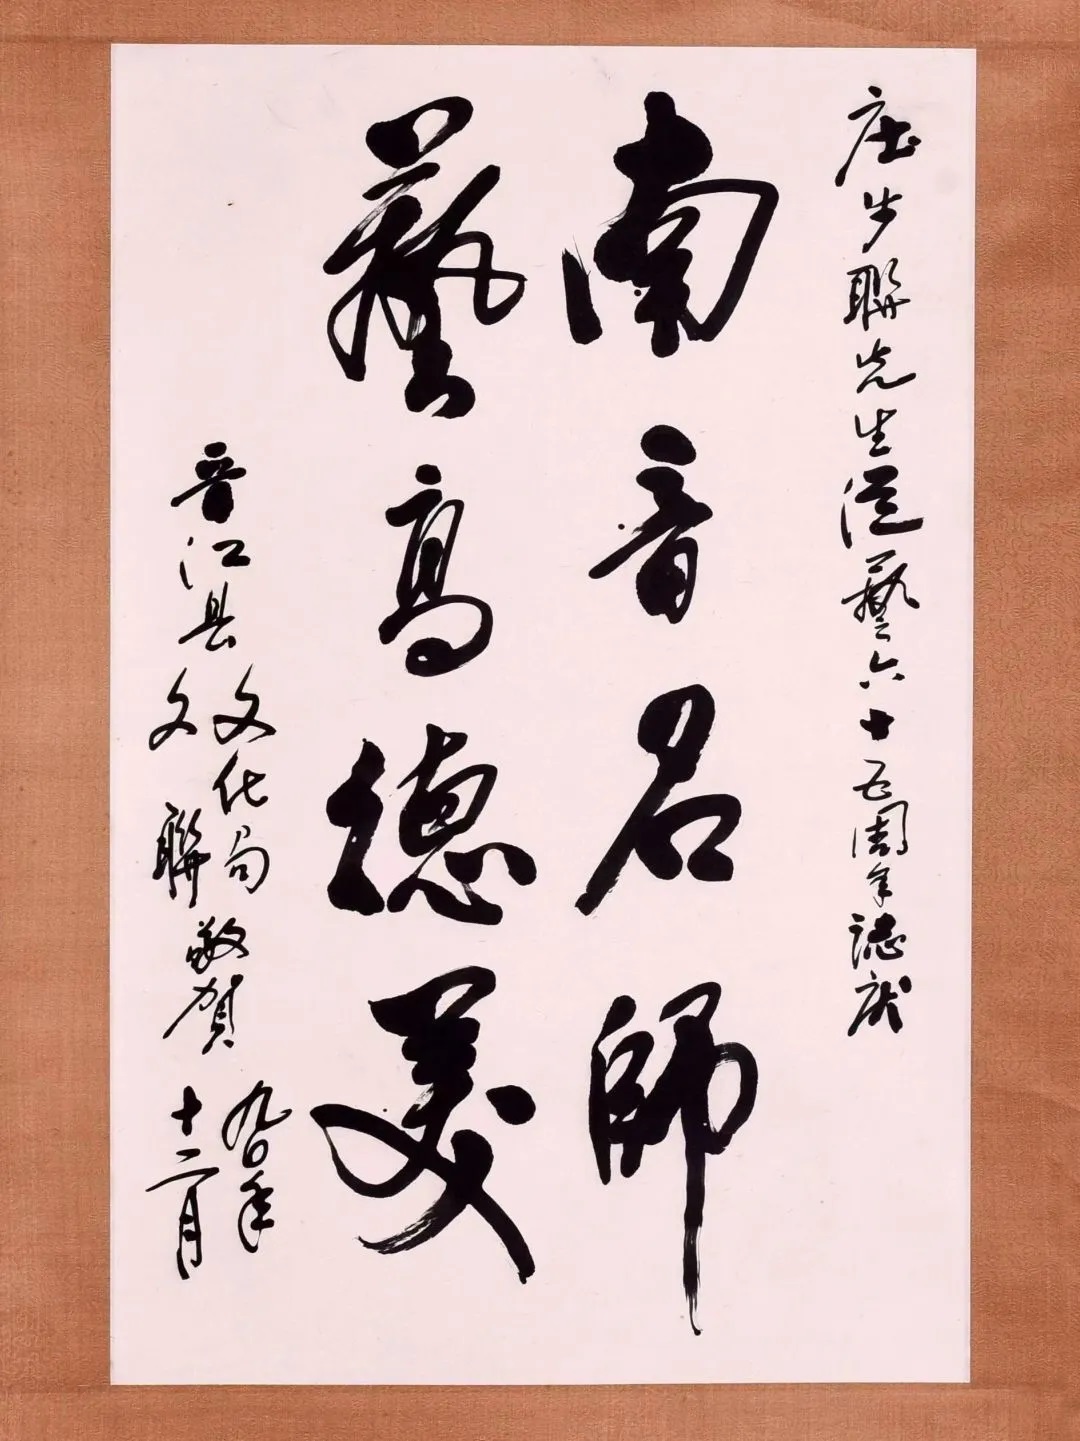 庄步聯先生從藝六十五周年誌慶
南音名師
藝高德美
晋江县
文化局
文聯
敬賀
九〇年
十二月